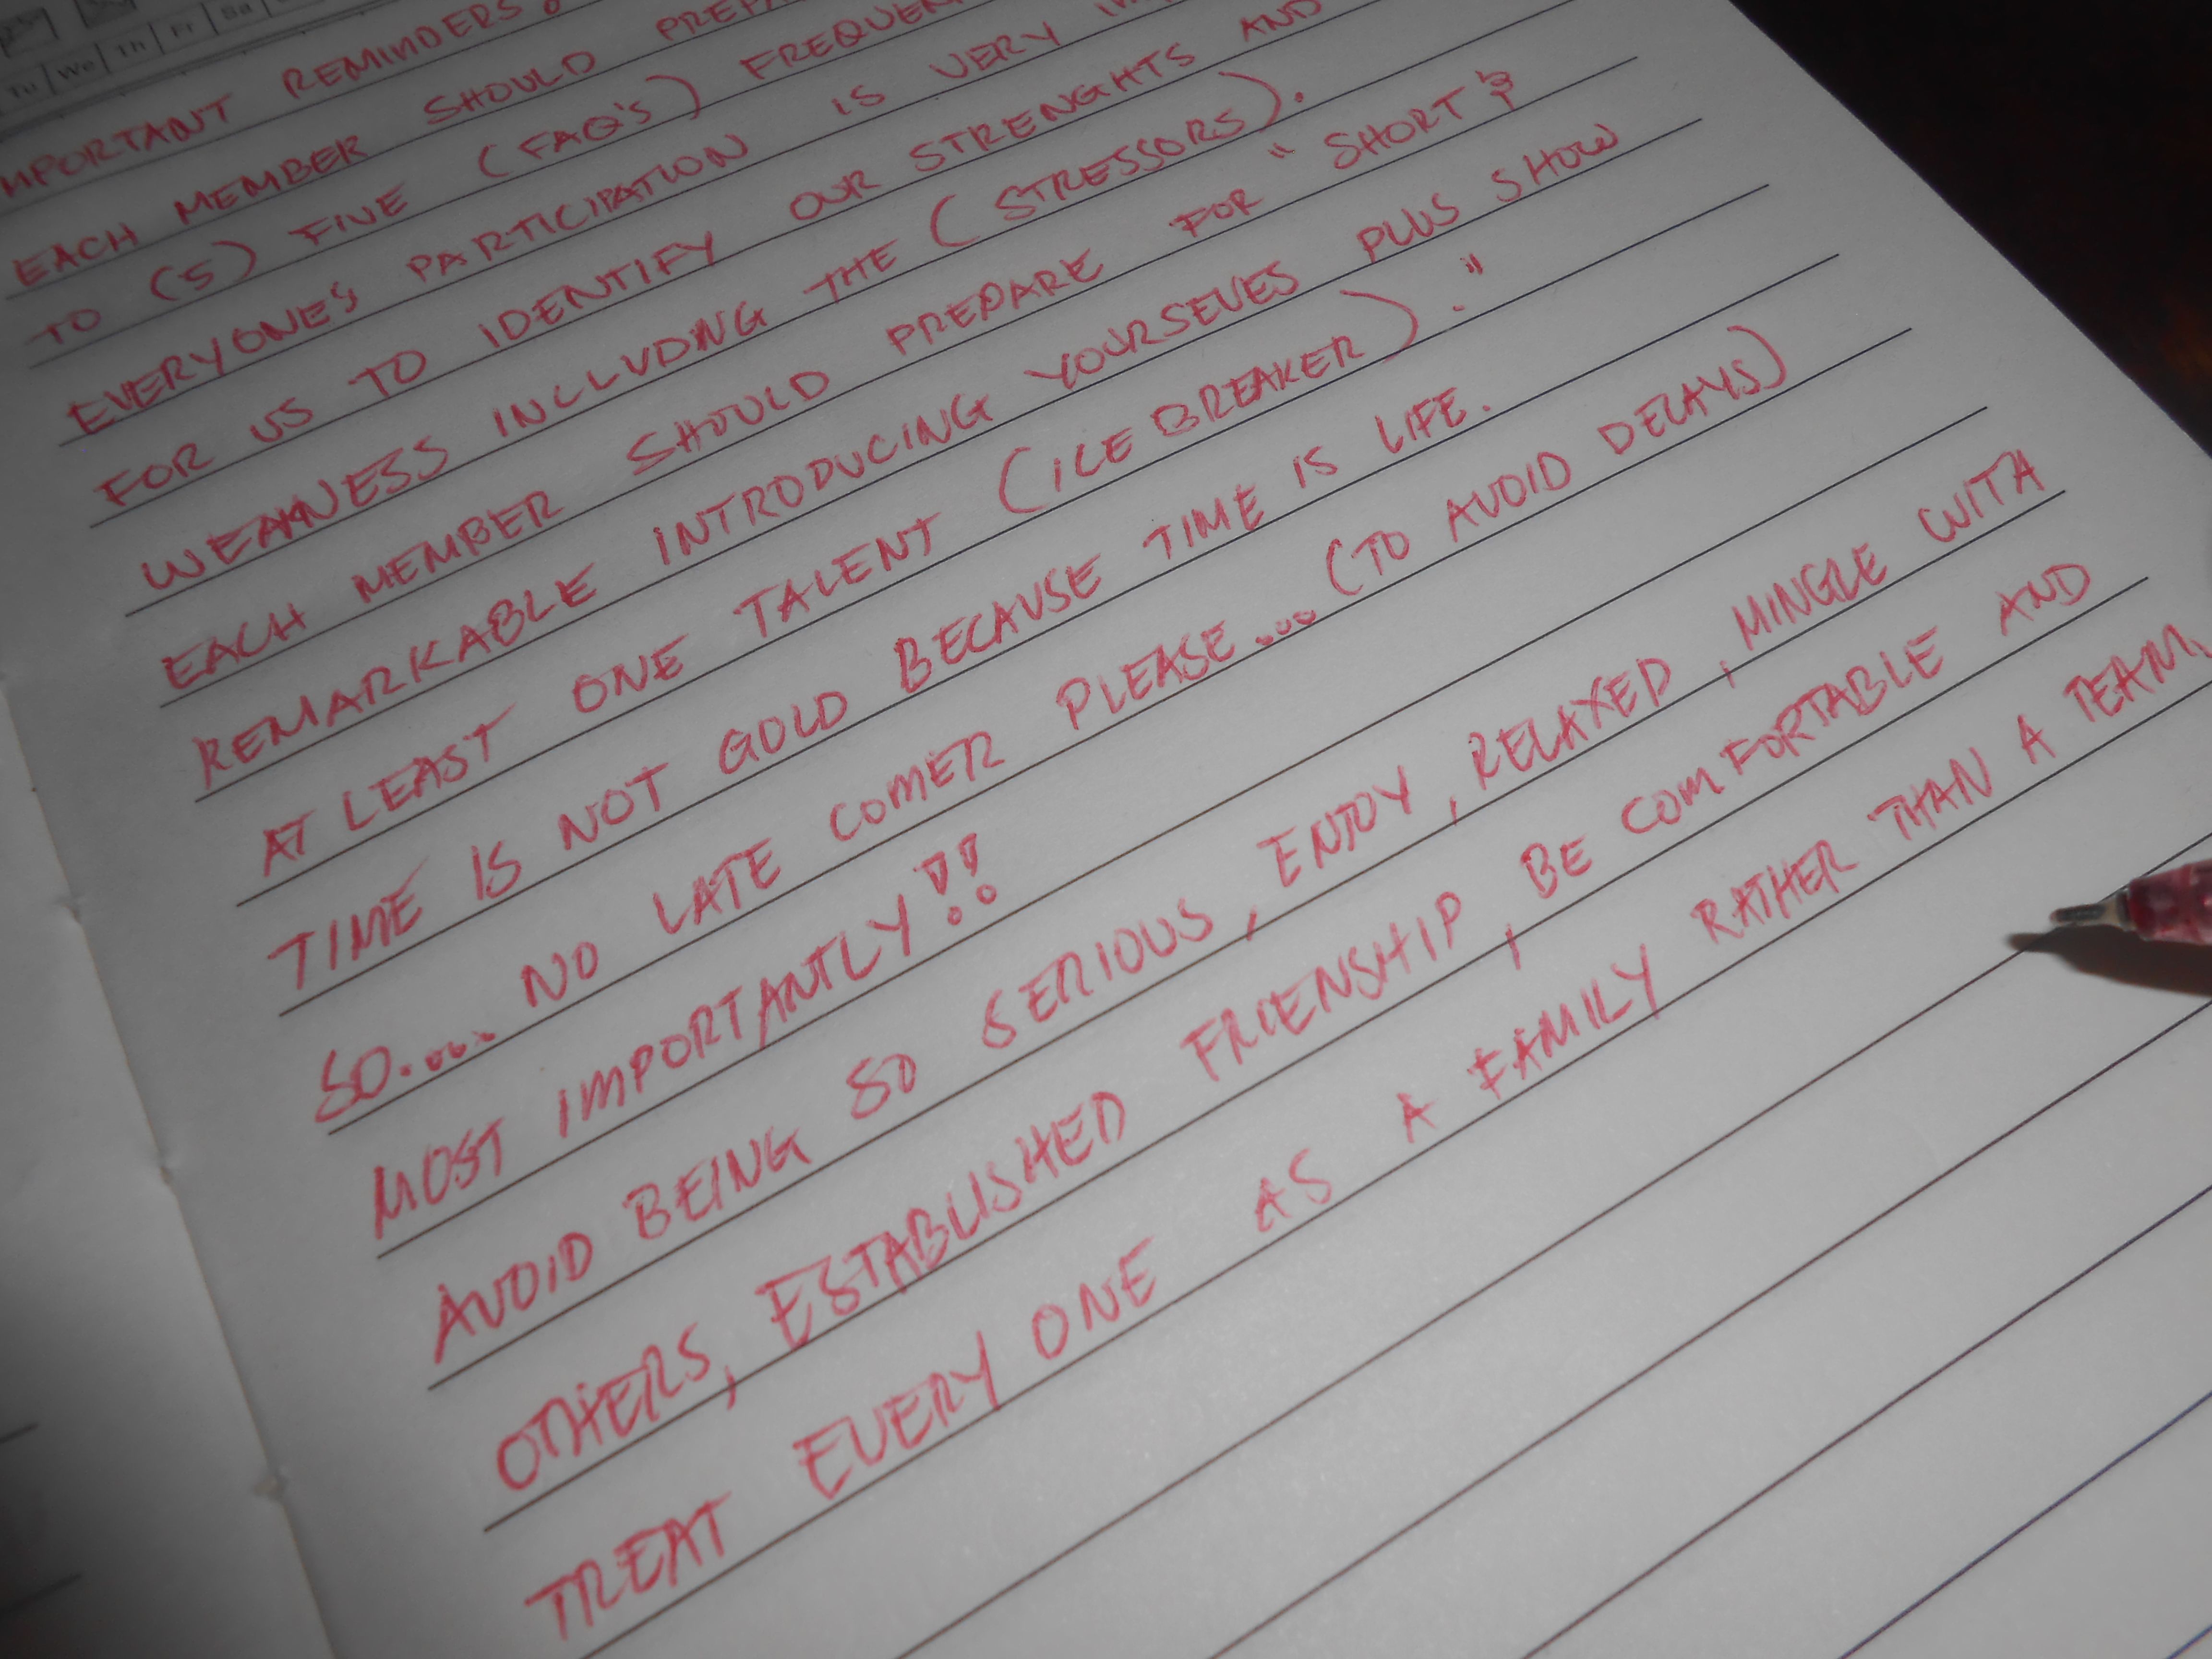 Tu We Th Fr Sa
IMPORTANT REMINDERS:
EACH MEMBER SHOULD
TO (5) FIVE (FAQ'S)
EVERYONE'S PARTICIPATION IS VERY
FOR US TO IDENTIFY OUR STRENGHTS AND
WEAKNESS INCLUDNG THE (STRESSORS).
EACH MEMBER SHOULD PREPARE FOR "SHORT &
REMARKABLE INTRODUCING YOURSEVES PLUS SHOW
AT LEAST ONE TALENT (ICE BREAKER)."
TIME IS NOT GOLD BECAUSE TIME IS LIFE.
SO.... NO LATE COMER PLEASE... (TO AVOID DELAYS)
MOST IMPORTANTLY!!
AVOID BEING SO SERIOUS, ENJOY, RELAXED, MINGLE WITH
OTHERS, ESTABLISHED FRIENSHIP, BE COMFORTABLE AND
TREAT EVERY ONE AS A FAMILY RATHER THAN A TEAM.